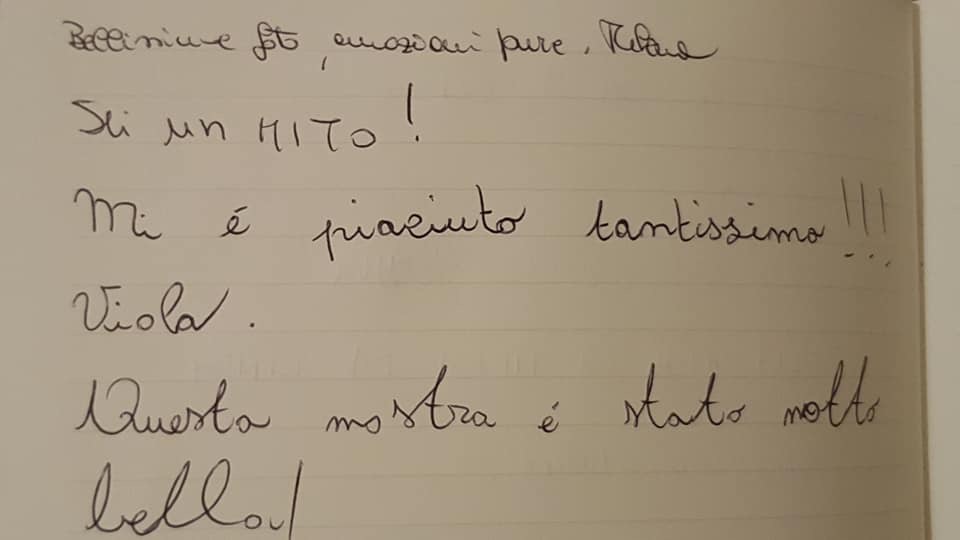 Bellissime foto, emozioni pure. Milena
Sei un MITO!
Mi é piaciuto tantissimo!!!
Viola.
Questa mostra é stato molto
bella!